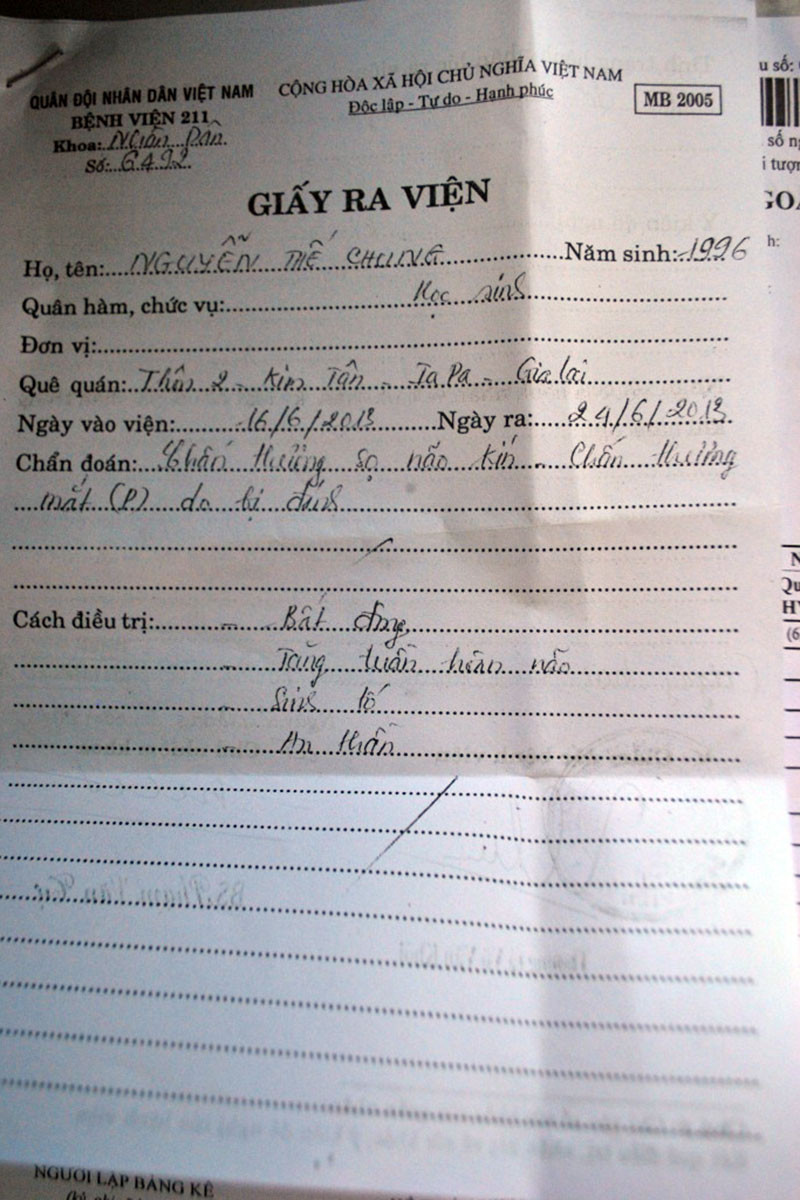 QUÂN ĐỘI NHÂN DÂN VIỆT NAM
CỘNG HÒA XÃ HỘI CHỦ NGHĨA VIỆT NAM
BỆNH VIỆN 211
Độc lập - Tự do - Hạnh phúc
MB 2005
Khoa: Ngoại Dân
Số: 6492
GIẤY RA VIỆN
Họ, tên: NGUYỄN THẾ CHUNG Năm sinh: 1996
Quân hàm, chức vụ: Học sinh
Đơn vị:
Quê quán: Thôn 2 - Kim Tân - Ia Pa - Gia lai
Ngày vào viện: 16/6/2013 Ngày ra: 24/6/2013
Chẩn đoán: Chấn thương sọ não kín - Chấn thương
mắt (P) do bị đánh
Cách điều trị: - Bất động
- Tăng tuần hoàn não
- Sinh tố
- An thần
BS. Phạm Văn
NGƯỜI LẬP BẢNG KÊ
u số:
số
i tượn
h: